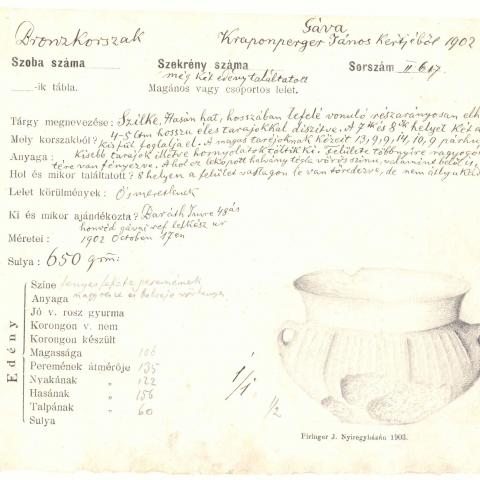 Bronzkorszak
Gáva
Kraponperger János kertjéből 1902
Szoba száma
Szekrény száma
Sorszám II-617
még két edény találtatott
-ik tábla.
Magános vagy csoportos lelet.
Tárgy megnevezése: Szilke. Hasán hat, hosszában lefelé vonuló részarányosan elh
4-5 cm hosszu éles tarajokkal diszitve. A 7ik és 8ik helyét két a
Mely korszakból? körfül foglalja el. A nagas tarajoknak közeit 13, 9, 9, 14, 10, 9 párhu
Anyaga: kisebb tarajok illetve hornyolatok töltik ki. Felülete többnyire
tére van tenyerve. A hol ez lekopott halvány tégla vörös szinü, valamint belül is,
Hol és mikor találtatott? 8 helyen a felület vastagon le van töredezve, de nem
Lelet körülmények: Ösmeretlenek
Ki és mikor ajándékozta? Baráth Imre 48as
honvéd gávai ref lelkész ur
Méretei: 1902 October 17en
Sulya: 650 grm:
Edény
Szine fényes fekete peremének
Anyaga
Jó v. rosz gyurma
Korongon v. nem
Korongon készült
Magassága 106
Peremének átmérője 135
Nyakának " 122
Hasának " 156
Talpának " 60
Sulya
1/1
1/2
Piringer J. Nyiregyházán 1903.